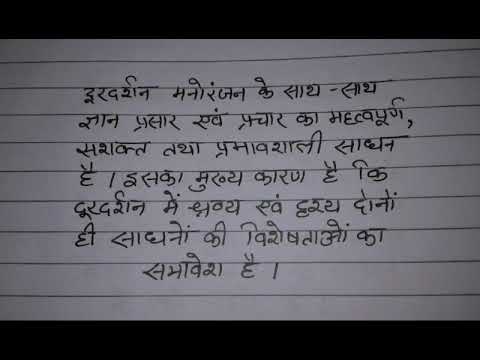 दूरदर्शन मनोरंजन के साथ-साथ
ज्ञान प्रसार एवं प्रचार का महत्वपूर्ण,
सशक्त तथा प्रभावशाली साधन
है। इसका मुख्य कारण है कि
दूरदर्शन में श्रव्य एवं दृश्य दोनों
ही साधनों की विशेषताओं का
समावेश है।